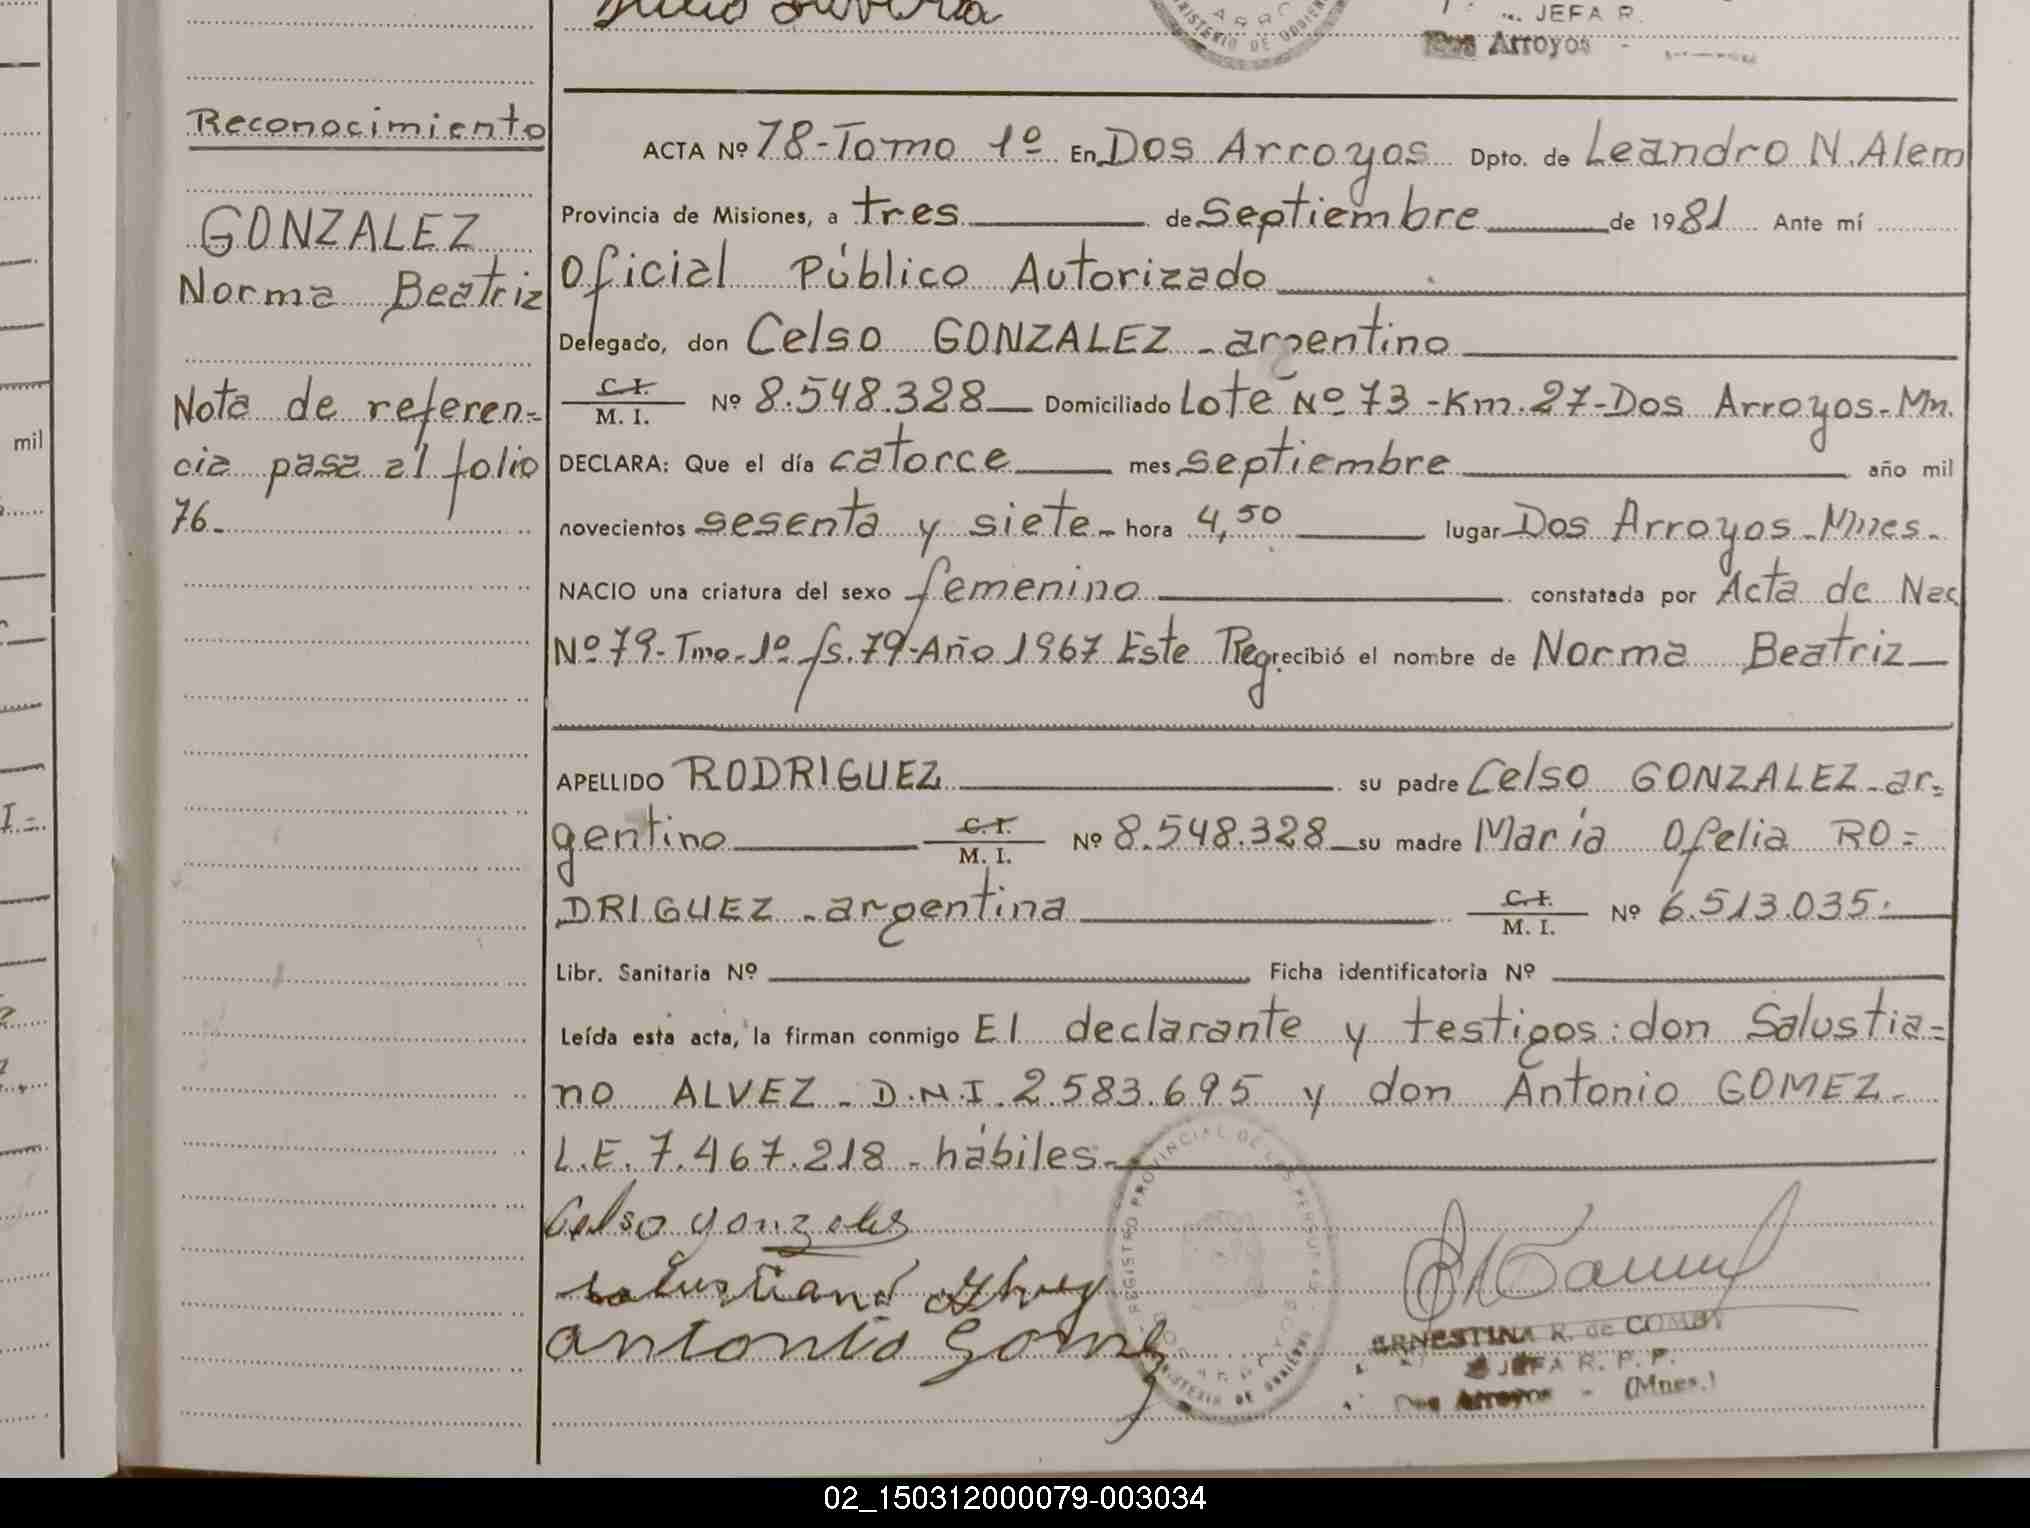 JEFA R.
Dos Arroyos -
Reconocimiento
GONZALEZ
Norma Beatriz
Nota de referen=
cia pasa al folio
76.
mil
ACTA Nº 78-Tomo 1º En Dos Arroyos Dpto. de Leandro N. Alem
Provincia de Misiones, a tres de Septiembre de 1981 Ante mí
Oficial Público Autorizado
Delegado, don Celso GONZALEZ - argentino
C.I.
M. I. Nº 8.548.328 Domiciliado Lote Nº 73 - Km. 27- Dos Arroyos - Mn.
DECLARA: Que el día catorce mes septiembre año mil
novecientos sesenta y siete - hora 4,50 lugar Dos Arroyos - Mnes.
NACIO una criatura del sexo femenino constatada por Acta de Nac
Nº 79- Tmo- 1º fs. 79- Año 1967 Este Reg. recibió el nombre de Norma Beatriz
APELLIDO RODRIGUEZ su padre Celso GONZALEZ - ar=
gentino C.I.
M. I. Nº 8.548.328 su madre María Ofelia RO=
DRIGUEZ - argentina C.I.
M. I. Nº 6.513.035.
Libr. Sanitaria Nº Ficha identificatoria Nº
Leída esta acta, la firman conmigo El declarante y testigos: don Salustia=
no ALVEZ - D.N.I. 2.583.695 y don Antonio GOMEZ -
L.E. 7.467.218 - hábiles -
Celso gonzales
salustiano Alvez
antonio Gomez
REGISTRO PROVINCIAL DE LAS PERSONAS
DOS ARROYOS
MINISTERIO DE GOBIERNO
ERNESTINA R. de COMBY
JEFA R. P. P.
Dos Arroyos - (Mnes.)
02_150312000079-003034